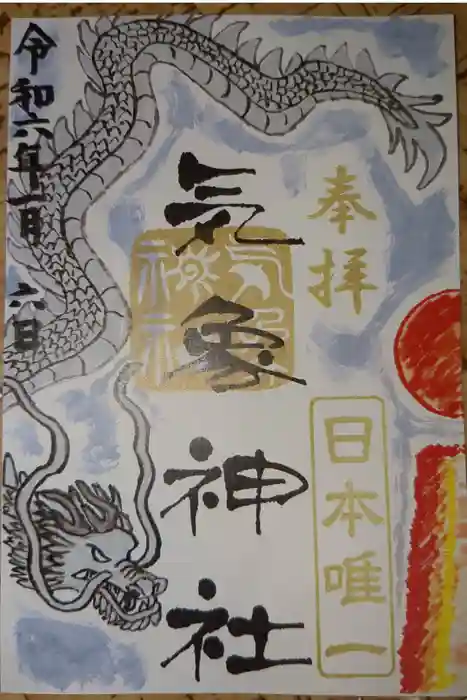 奉拝
日本唯一
気象神社
令和六年一月六日